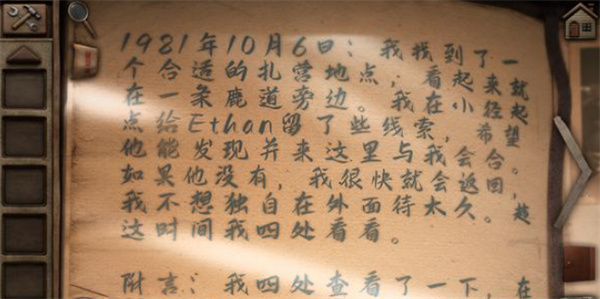 1921年10月6日：我找到了一
个合适的扎营地点，看起来就
在一条鹿道旁边。我在小径起
点给Ethan留了些线索，希望
他能发现并来这里与我会合。
如果他没有，我很快就会返回，
我不想独自在外面待太久。趁
这时间我四处看看。
附言：我四处查看了一下，在